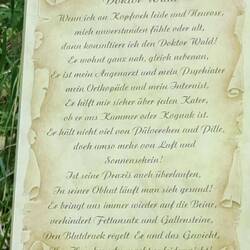 Doktor Wald
Wenn ich an Kopfweh leide und Neurose,
mich unverstanden fühle oder alt,
dann konsultiere ich den Doktor Wald!
Er wohnt ganz nah, gleich nebenan,
Er ist mein Augenarzt und mein Psychiater
mein Orthopäde und mein Internist.
Er hilft mir sicher über jeden Kater,
ob er aus Kummer oder Kognak ist.
Er hält nicht viel von Pülverchen und Pille,
doch umso mehr von Luft und
Sonnenschein!
Ist seine Praxis auch überlaufen,
In seiner Obhut läuft man sich gesund!
Er bringt uns immer wieder auf die Beine,
verhindert Fettansatz und Gallensteine,
Den Blutdruck regelt Er und das Gewicht,